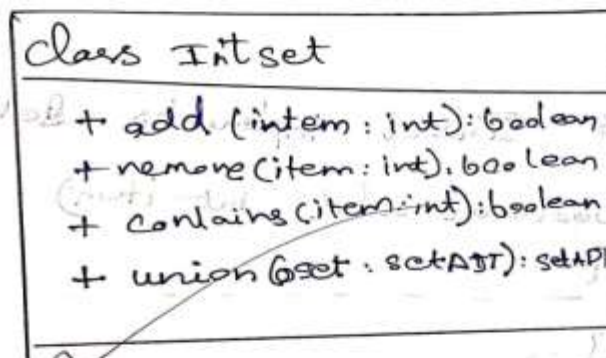 class Intset
+ add (intem : int) : boolean
+ remove (item : int). boolean
+ contains (item : int) : boolean
+ union (oset : setADT) :